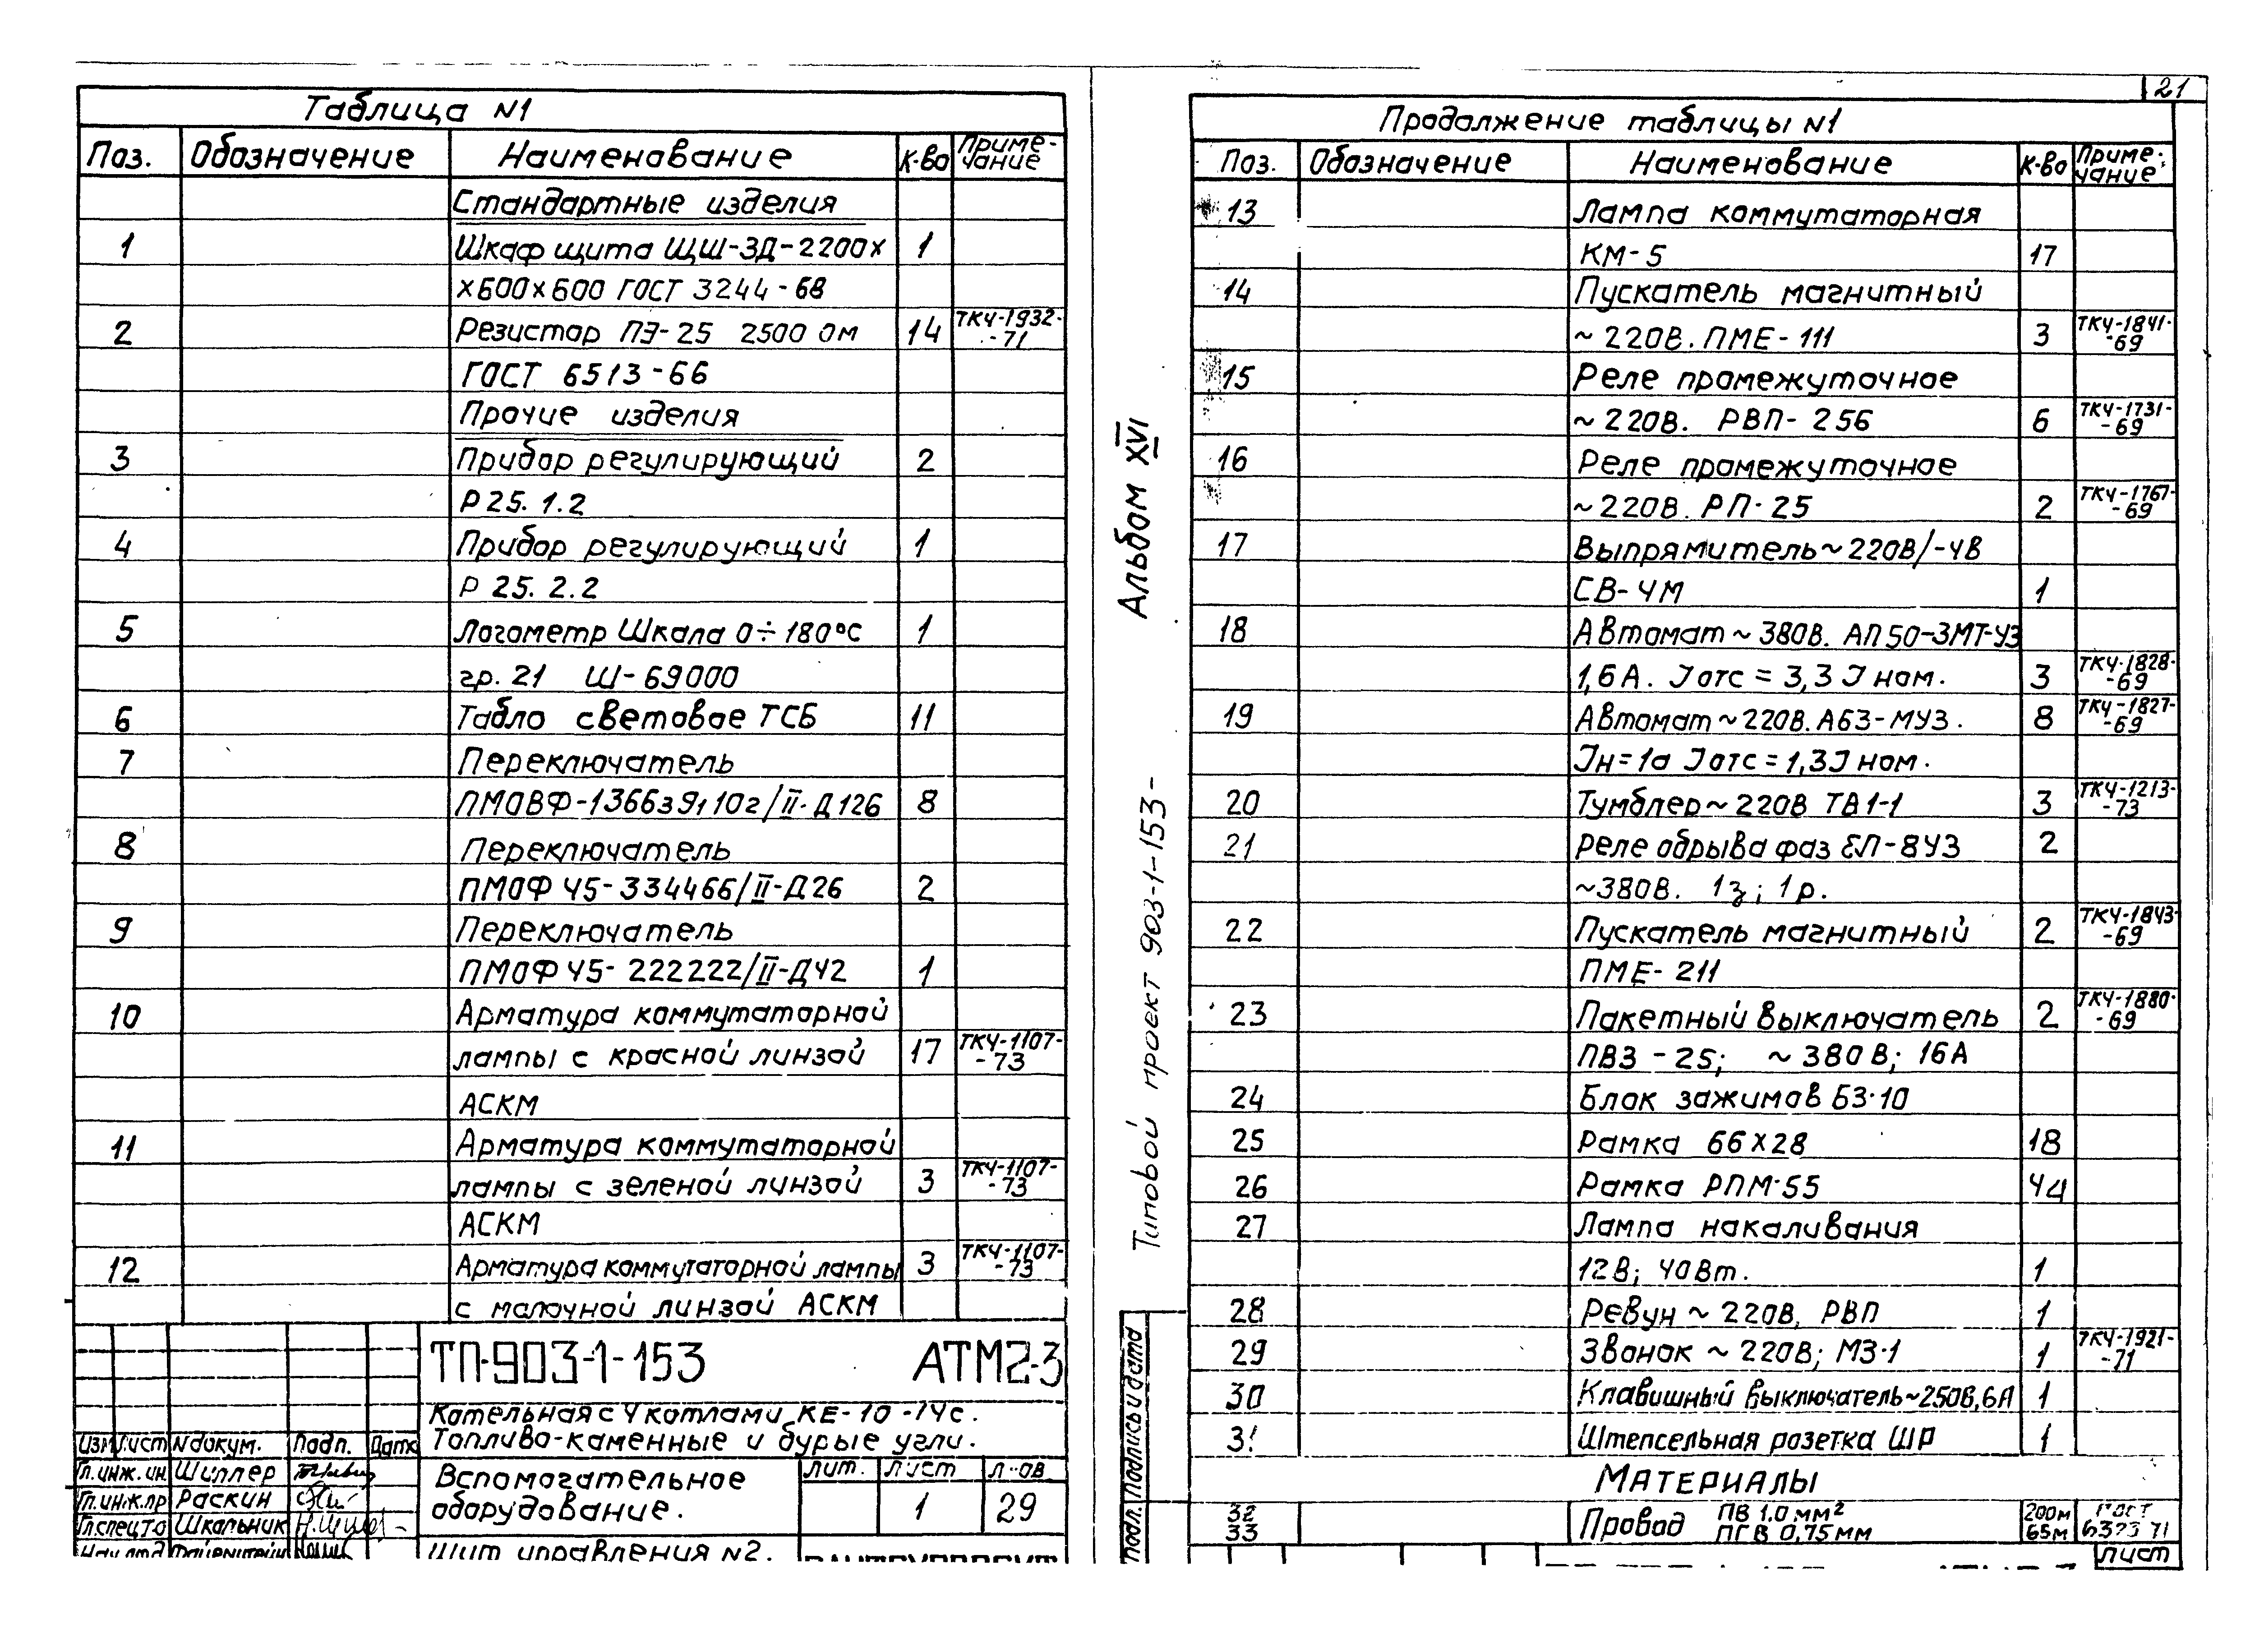 21
Таблица N1
Поз. Обозначение Наименование К-во Приме-
чание
Стандартные изделия
1 Шкаф щита ЩШ-ЗД-2200х 1
х600х600 ГОСТ 3244-68
2 Резистор ПЭ-25 2500 Ом 14 ТКЧ-1932-
-71
ГОСТ 6513-66
Прочие изделия
3 Прибор регулирующий 2
Р 25.1.2
4 Прибор регулирующий 1
Р 25.2.2
5 Логометр Шкала 0÷180°С 1
гр. 21 Ш-69000
6 Табло световое ТСБ 11
7 Переключатель
ПМОВФ-1366з9г10г/II-Д126 8
8 Переключатель
ПМОФ45-334466/II-Д26 2
9 Переключатель
ПМОФ45-222222/II-Д42 1
10 Арматура коммутаторной
лампы с красной линзой 17 ТКЧ-1107-
-73
АСКМ
11 Арматура коммутаторной
лампы с зеленой линзой 3 ТКЧ-1107-
-73
АСКМ
12 Арматура коммутаторной лампы 3 ТКЧ-1107-
-73
с молочной линзой АСКМ
ТП-903-1-153 АТМ2-3
Котельная с 4 котлами КЕ-10-14с.
Топливо-каменные и бурые угли.
Изм Лист N докум. Подп. Дата
Гл.инж.ин Шиллер
Гл.инж.пр Раскин
Гл.спец.то Школьник
Вспомогательное
оборудование.
Лит. Лист Л-ов
1 29
Щит управления N2.
Альбом XVI
Типовой проект 903-1-153-
Подпись и дата
Подл.
Продолжение таблицы N1
Поз. Обозначение Наименование К-во Приме-
чание
13 Лампа коммутаторная
КМ-5 17
14 Пускатель магнитный
~220В. ПМЕ-111 3 ТКЧ-1841-
-69
15 Реле промежуточное
~220В. РВП-256 6 ТКЧ-1731-
-69
16 Реле промежуточное
~220В. РП-25 2 ТКЧ-1767-
-69
17 Выпрямитель~220В/-4В
СВ-4М 1
18 Автомат~380В. АП50-3МТ-У3
1,6А. Jотс=3,3 Jном. 3 ТКЧ-1828-
-69
19 Автомат~220В. А63-МУ3. 8 ТКЧ-1827-
-69
Jн=1а Jотс=1,3Jном.
20 Тумблер~220В ТВ1-1 3 ТКЧ-1213-
-73
21 Реле обрыва фаз ЕЛ-8У3 2
~380В. 1з; 1р.
22 Пускатель магнитный 2 ТКЧ-1843-
-69
ПМЕ-211
23 Пакетный выключатель 2 ТКЧ-1880-
-69
ПВ3-25; ~380В; 16А
24 Блок зажимов БЗ-10
25 Рамка 66х28 18
26 Рамка РПМ-55 44
27 Лампа накаливания
12В; 40Вт. 1
28 Ревун~220В, РВП 1
29 Звонок~220В; МЗ-1 1 ТКЧ-1921-
-71
30 Клавишный выключатель~250В,6А 1
31 Штепсельная розетка ШР 1
Материалы
32 Провод ПВ 1.0 мм² 200м ГОСТ
33 ПГВ 0,75мм 65м 6323-71
Лист